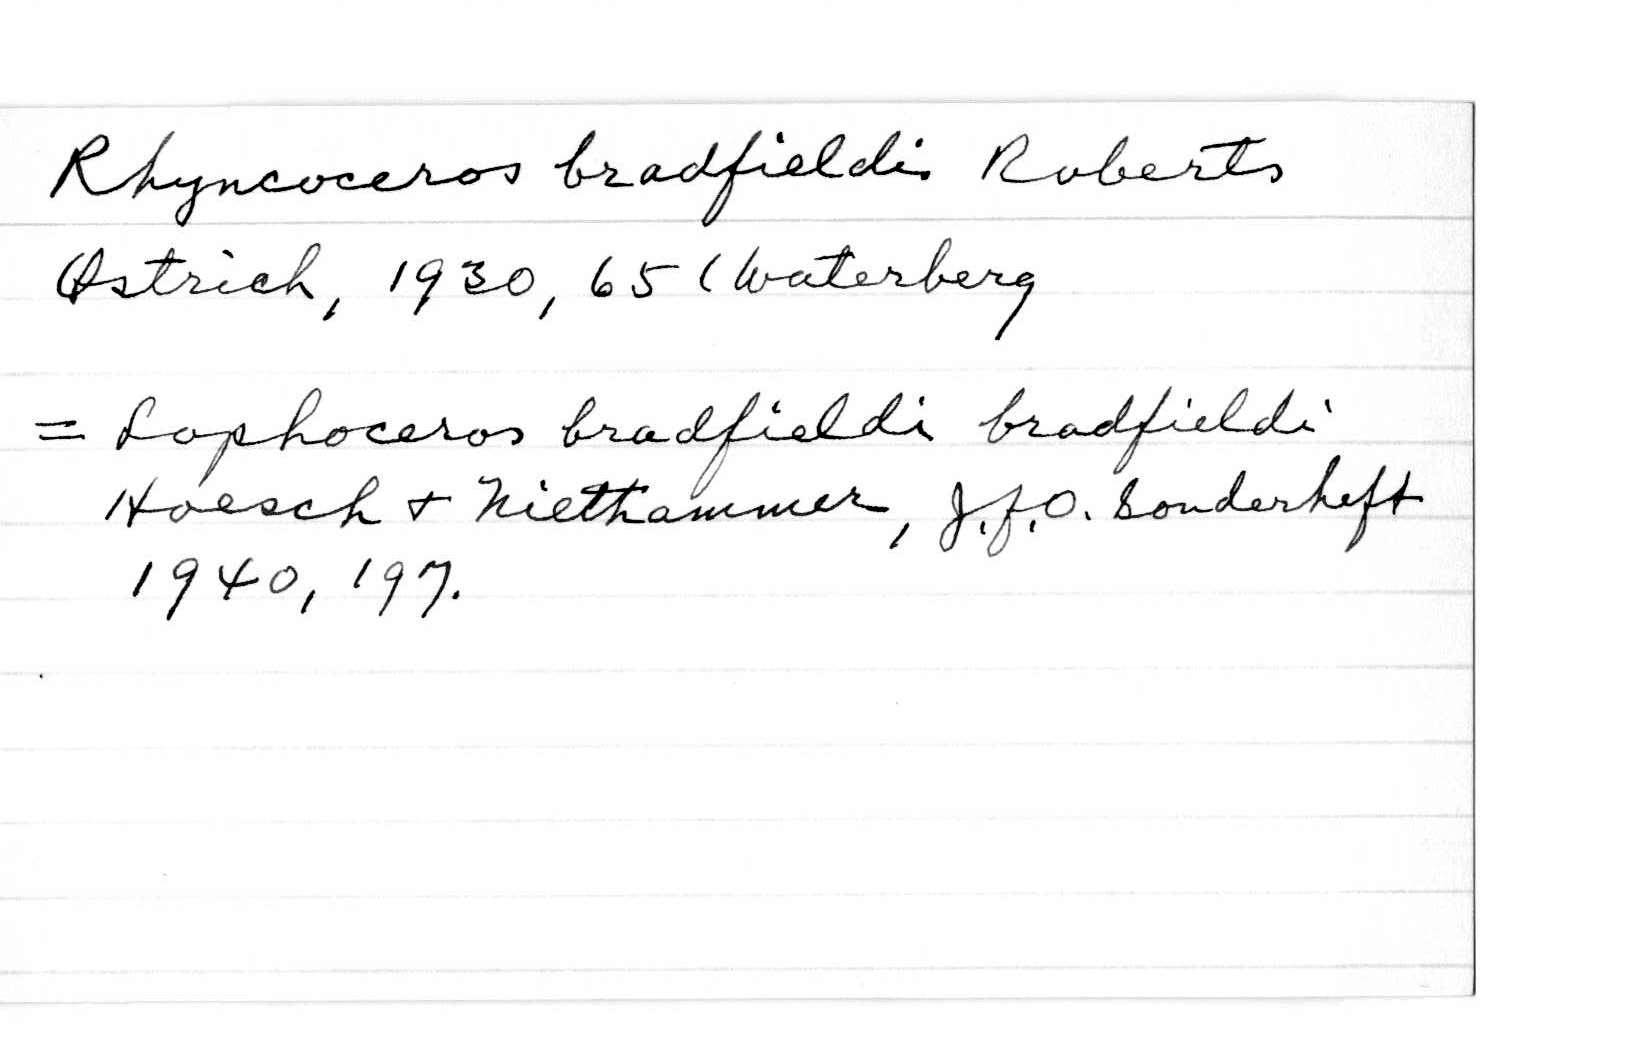 Rhyncoceros bradfieldi Roberts
Ostrich, 1930, 65 (Waterberg
= Lophoceros bradfieldi bradfieldi
Hoesch + Niethammer, J.f.O. Sonderheft
1940, 197.